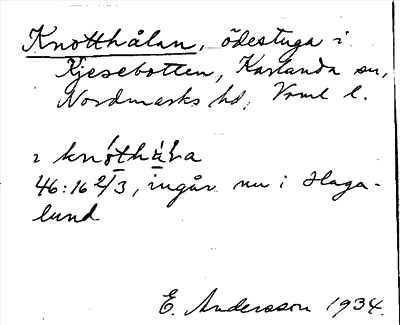 Knotthålan, ödestuga i
Kjesebotten, Karlanda sn,
Nordmarks hd, Vrml l.
2 knòthä̀ɫa
46:16 2/3, ingår nu i Haga-
lund
E. Andersson 1934.